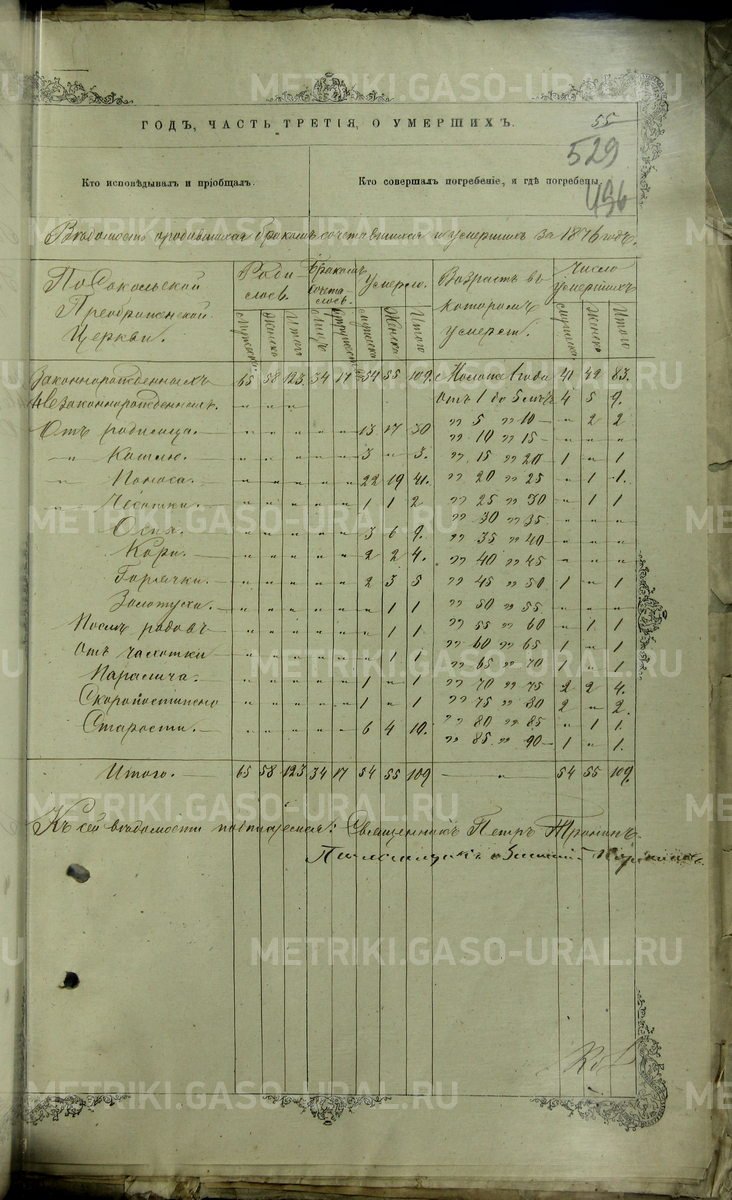 METRIKI.GASO-URAL.RU
ГОДЪ, ЧАСТЬ ТРЕТІЯ, О УМЕРШИХЪ.
55
529
496
Кто исповѣдывалъ и пріобщалъ.
Кто совершалъ погребеніе, и гдѣ погребены.
Вѣдомость о родившихся бракомъ сочетавшихся и умершихъ за 1876 годъ.
По Сокольской Преображенской Церкви.
Роди- лось.
Бракомъ сочета- лось.
Умерло.
Возрастъ въ которомъ умерли.
Число умершихъ
Мужеска Женска Итого Лицъ Супружествъ Мужеска Женска Итого Мужеска Женска Итого
Законнорожденныхъ 65 58 123 34 17 54 55 109. 1 года 41 42 83.
Незаконнорожденныхъ. " " " Отъ 1 до 5 лѣтъ 4 5 9.
Отъ родимца. — " " " " " 13 17 30 " 5 " 10 — " 2 2
" Кашлю. — " " " " " 3 " 3. " 10 " 15 — " " "
" Поноса — " " " " " 22 19 41. " 15 " 20 — 1 " 1
" Чесотки. — " " " " " 1 1 2 " 20 " 25 " 1 1.
Оспа. — " " " " " 3 6 9. " 25 " 30 " 1 1
Кори. — " " " " " 2 2 4. " 30 " 35. " " "
Горячки. — " " " " " 2 3 5 " 35 " 40 — " " "
Золотуха. — " " " " " " 1 1 " 40 " 45 " " "
Послѣ родовъ " " " " " " 1 1 " 45 " 50 1 " 1
Отъ чахотки " " " " " " 1 1 " 50 " 55 " " "
Паралича. — " " " " " 1 " 1 " 55 " 60 " 1 1
Скоропостижно " " " " " 1 " 1 " 60 " 65 1 " 1
Старости. — " " " " " 6 4 10. " 65 " 70 1 " 1.
" 70 " 75 2 2 4.
" 75 " 80 2 " 2.
" 80 " 85 " 1 1.
" 85 " 90 — 1 " 1.
Итого. — 65 58 123 34 17 54 55 109 — " — 54 55 109.
Къ сей вѣдомости Священникъ Петръ